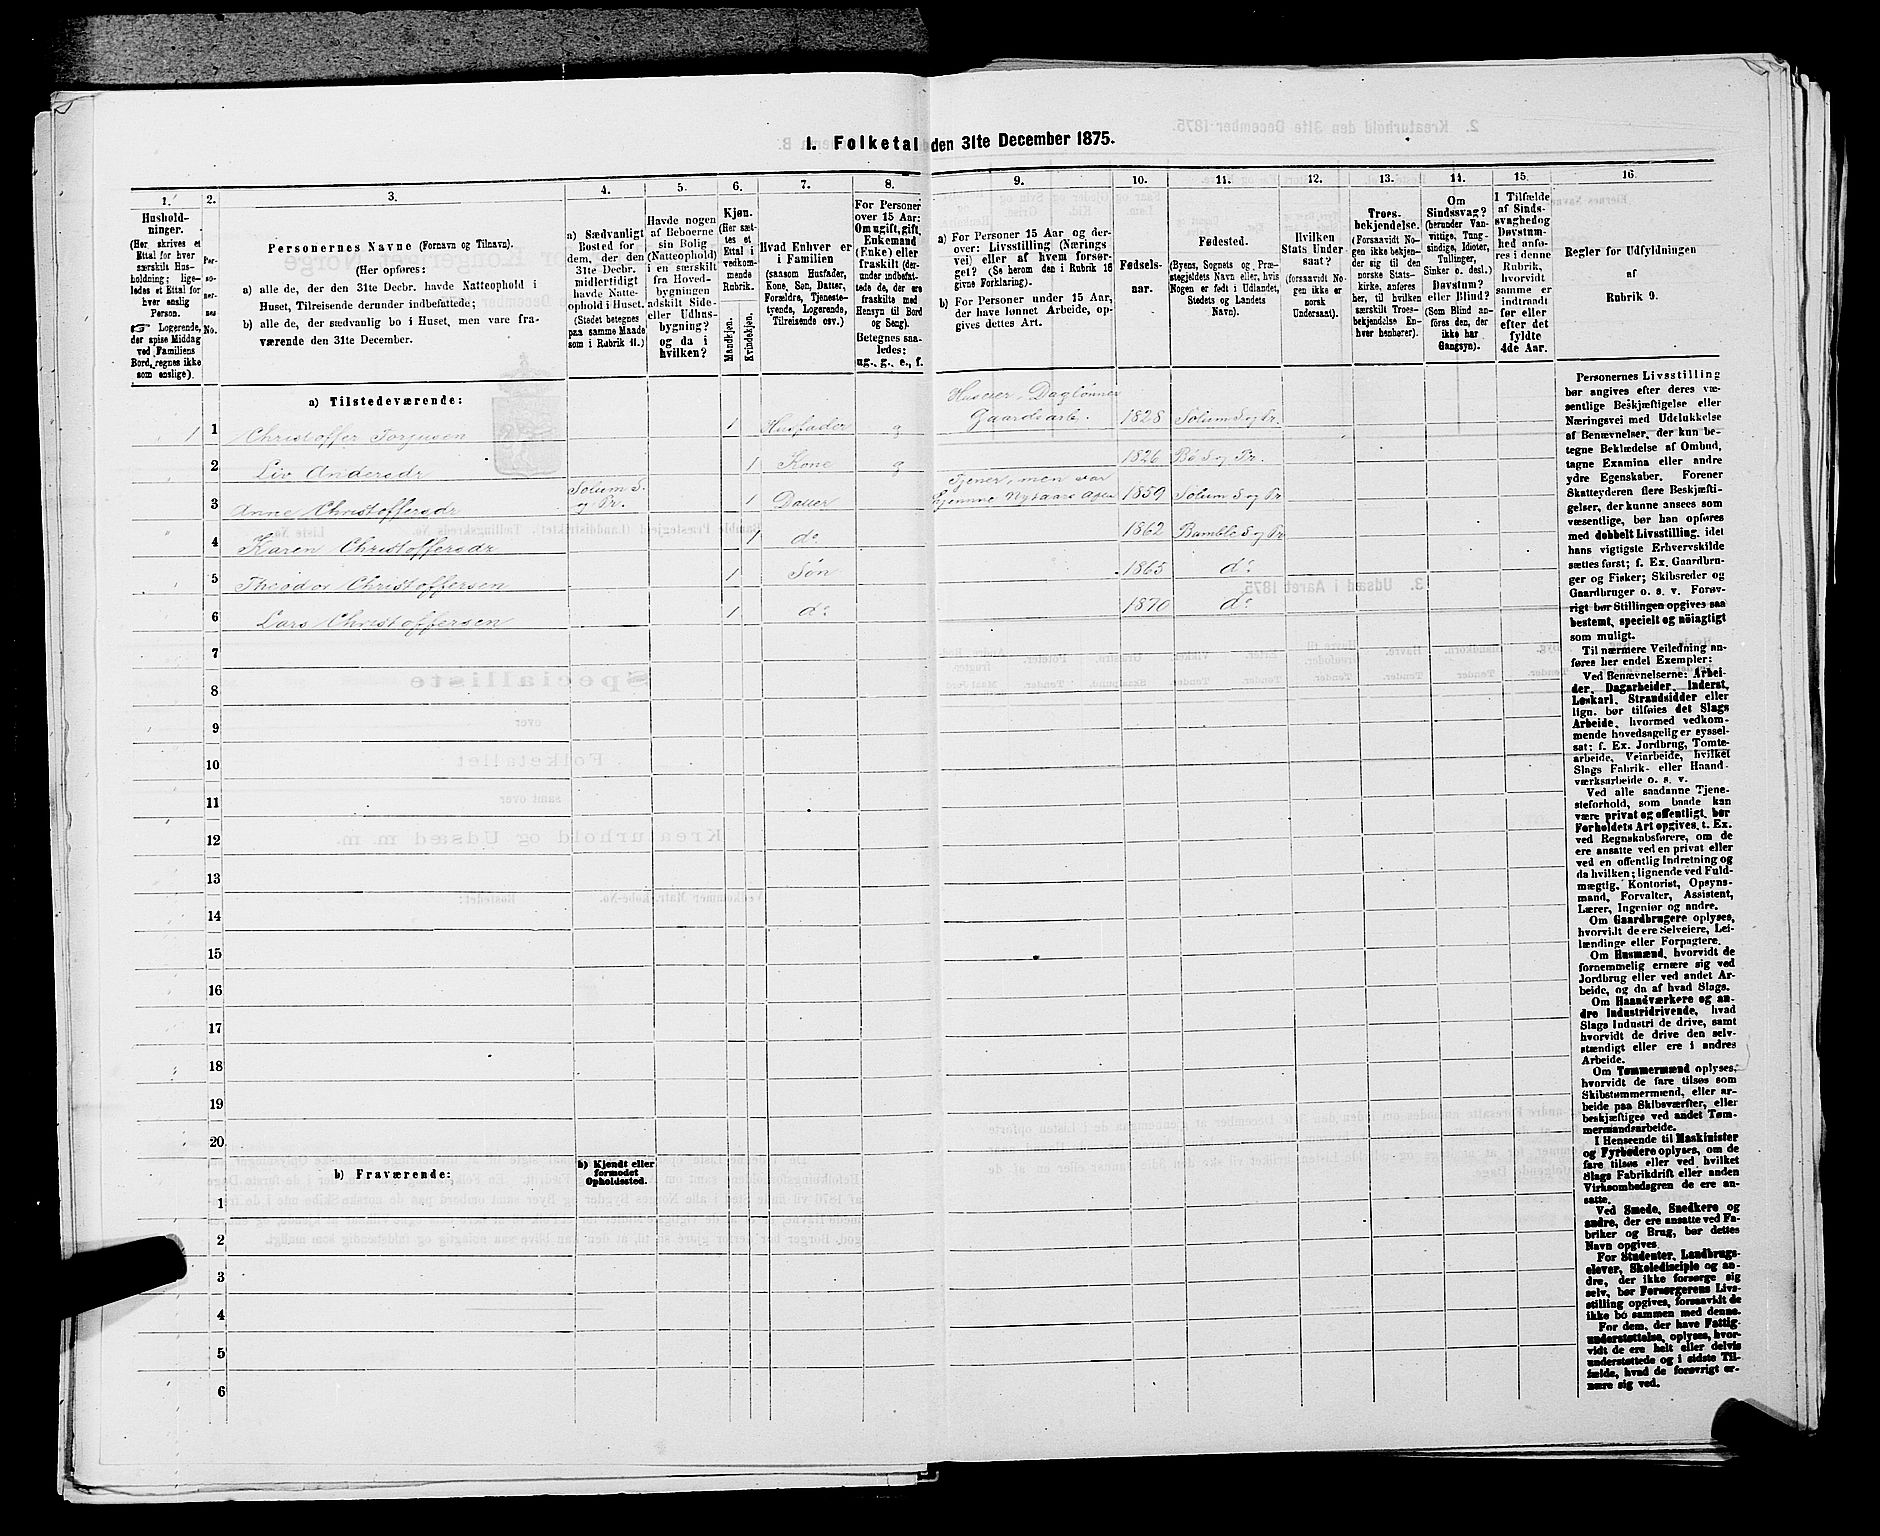 1. Folketal den 31te December 1875.
1.
2.
3.
4.
5.
6.
7.
8.
9.
10.
11.
12.
13.
14.
15.
16
Hushold-
ninger.
(Her skrives et
Ettal for hver
særskilt Hus-
holdning; lige-
ledes et Ettal for
hver enslig
Person.
☞ Logerende,
der spise Middag
ved Familiens
Bord, regnes ikke
som enslige).
Per-
so-
ner-
nes
No.
Personernes Navne (Fornavn og Tilnavn).
(Her opføres:
a) alle de, der den 31te Decbr. havde Natteophold i
Huset, Tilreisende derunder indbefattede;
b) alle de, der sædvanlig bo i Huset, men vare fra-
værende den 31te December.
a) Sædvanligt
Bosted for
dem, der den
31te Decbr.
midlertidigt
havde Natte-
ophold i Huset.
(Stedet betegnes
paa samme Maade
som i Rubrik 11.)
Havde nogen
af Beboerne
sin Bolig
(Natteophold)
i en særskilt
fra Hoved-
bygningen
adskilt Side-
eller Udhus-
bygning?
og da i
hvilken?
Kjøn.
(Her sæt-
tes et
Ettal i
vedkom-
mende
Rubrik.
Mandkjøn.
Kvindekjøn.
Hvad Enhver er
i Familien
(saasom Husfader,
Kone, Søn, Datter,
Forældre, Tjeneste-
tyende, Logerende,
Tilreisende osv.)
For Personer
over 15 Aar:
Om ugift, gift,
Enkemand
(Enke) eller
fraskilt (der-
under indbefat-
tede de, der ere
fraskilte med
Hensyn til Bord
og Seng).
Betegnes saa-
ledes:
ug., g., e., f.
a) For Personer 15 Aar og der-
over: Livsstilling (Nærings
vei) eller af hvem forsør-
get? (Se herom den i Rubrik 16
givne Forklaring).
b) For Personer under 15 Aar,
der have lønnet Arbeide, op-
gives dettes Art.
Fødsels-
aar.
Fødested.
(Byens, Sognets og Præ-
stegjeldets Navn eller, hvis
Nogen er født i Udlandet,
Stedets og Landets
Navn).
Hvilken
Stats Under-
saat?
(forsaavidt No-
gen ikke er
norsk
Undersaat).
Troes-
bekjendelse.
(Forsaavidt No-
gen ikke bekjen-
der sig til den
norske Stats-
kirke, anføres
her, til hvilken
særskilt Troes-
bekjendelse En-
hver henhører).
Om
Sindssvag?
(herunder Van-
vittige, Tung-
sindige, Idioter,
Tullinger,
Sinker o. desl.)
Døvstum?
eller Blind?
(Som Blind an-
føres den, der
ikke har
Gangsyn).
I Tilfælde
af Sinds-
svaghed og
Døvstum-
hed anfø-
res i denne
Rubrik,
hvorvidt
samme er
indtraadt
før eller
efter det
fyldte
4de Aar.
Regler for Udfyldningen
af
Rubrik 9.
a) Tilstedeværende:
1 1 Christoffer Torjusen 1 Husfader g Huseier, Daglønner Gaardsarb. 1828 Solum S og Pr.
2 Liv Andersdr 1 Kone g 1826 Bø S og Pr.
3 Anne Christoffersdr Solum S. og Pr. 1 Datter Tjener, men var hjemme 1859 Solum S og Pr
4 Karen Christoffersdr 1 do 1862 Bamble S og Pr
5 Theodor Christoffersen 1 Søn 1865 do
6 Lars Christoffersen 1 do 1870 do
7
8
9
10
11
12
13
14
15
16
17
18
19
20
b) Fraværende:
b) Kjendt eller
formodet
Opholdssted.
1
2
3
4
5
6
Personernes Livsstilling
bør angives efter deres væ-
sentlige Beskjæftigelse eller
Næringsvei med Udelukkelse
af Benævnelser, der kun be-
tegne Beklædelse af Ombud,
tagne Examina eller andre
ydre Egenskaber. Forener
Skatteyderen flere Beskjæfti-
gelser, der kunne ansees som
væsentlige, bør han opføres
med dobbelt Livsstilling, idet
hans vigtigste Erhvervskilde
sættes først; f. Ex. Gaardbru-
ger og Fisker; Skibsreder og
Gaardbruger o. s. v. Forøv-
rigt bør Stillingen opgives saa
bestemt, specielt og nøiagtigt
som muligt.
Til nærmere Veiledning an-
føres her endel Exempler:
Ved Benævnelserne: Arbei-
der, Dagarbeider, Inderst,
Løskarl, Strandsidder eller
lign. bør tilføies det Slags
Arbeide, hvormed vedkom-
mende hovedsagelig er syssel-
sat; f. Ex. Jordbrug, Tomte-
arbeide, Veiarbeide, hvilket
Slags Fabrik- eller Haand
værksarbeide o. s. v.
Ved alle saadanne Tjene-
steforhold, som baade kan
være privat og offentligt, bør
Forholdets Art opgives, t. Ex.
ved Regnskabsførere, om de
ere ansatte ved en privat eller
ved en offentlig Indretning og
da hvilken; lignende ved Fuld-
mægtig, Kontorist, Opsyns-
mand, Forvalter, Assistent,
Lærer, Ingeniør og andre.
Om Gaardbrugere oplyses,
hvorvidt de ere Selveiere, Lei-
lændinge eller Forpagtere.
Om Husmænd, hvorvidt de
fornemmelig ernære sig ved
Jordbrug eller ved andet Ar-
beide, og da af hvad Slags.
Om Haandværkere og an-
dre Industridrivende, hvad
Slags Industri de drive, samt
hvorvidt de drive den selv-
stændigt eller ere i andres
Arbeide.
Om Tømmermænd oplyses,
hvorvidt de fare tilsøs som
Skibstømmermænd, eller ar-
beide paa Skibsværfter, eller
beskjæftiges ved andet Tøm-
mermandsarbeide.
I Henseende til Maskinister
og Fyrbødere oplyses, om de
fare tilsøs eller ved hvilket
Slags Fabrikdrift eller anden
Virksomhedsgren de ere an-
satte.
Ved Smede, Snedkere og
andre, der ere ansatte ved Fa-
briker og Brug, bør dettes
Navn opgives.
For Studenter, Landbrugs-
elever, Skoledisciple og an-
dre, der ikke forsørge sig
selv, bør Forsørgerens Livs-
stilling opgives, forsaavidt de
ikke bo sammen med denne.
For dem, der have Fattig-
understøttelse, oplyses, hvor-
vidt de ere helt eller delvis
understøttede og i sidste Til-
fælde, hvad de forøvrigt er-
nære sig ved.